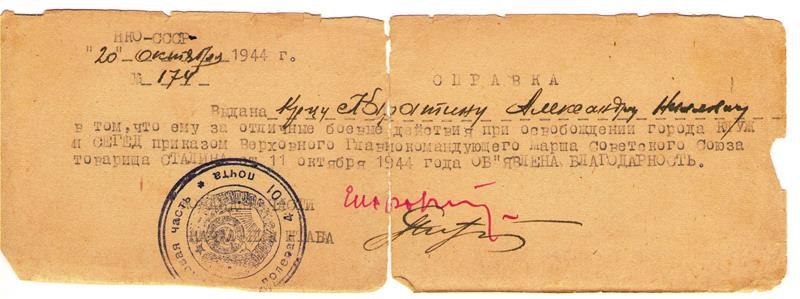 НКО-СССР
"20" октября 1944 г.
№ 174
СПРАВКА
Выдана Александру
в том, что ему за отличные боевые действия при освобождении города КЛУЖ
И СЕГЕД приказом Верховного Главнокомандующего Марша Советского Союза
товарища СТАЛИНА от 11 октября 1944 года ОБ"ЯВЛЕНА БЛАГОДАРНОСТЬ.
ЧАСТИ
НАЧАЛЬНИК ШТАБА
полевая почта * часть *